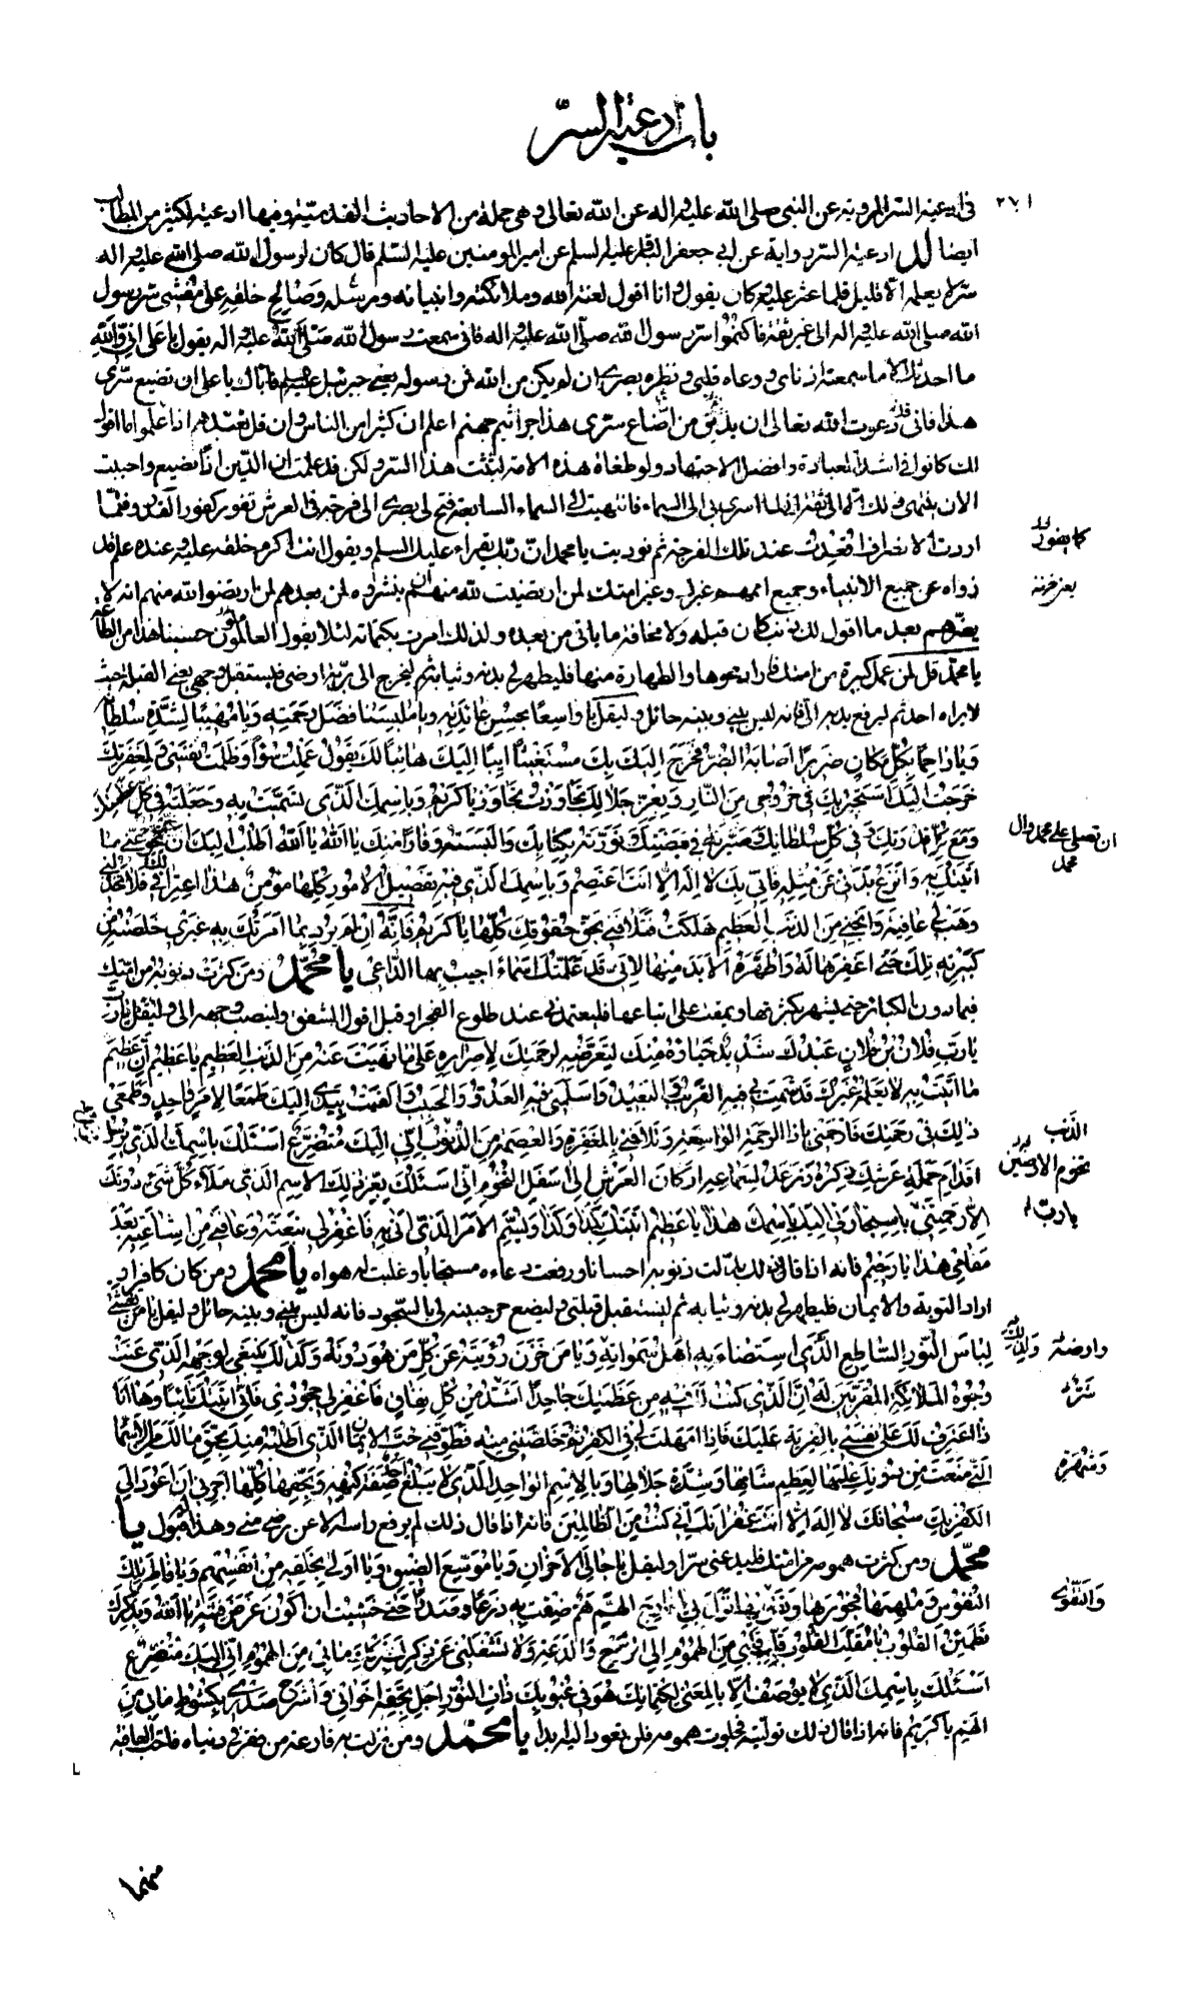 باب ادعية السر
في ادعية السر المروية عن النبي صلى الله عليه واله عن الله تعالى وهي جملة من الاحاديث القدسية وفيها ادعية لكثير من المطالب
٢٧١
ايضا ادعية السر رواية عن ابي جعفر الباقر عليه السلم عن امير المومنين عليه السلم قال كان لرسول الله صلى الله عليه واله
سر لا يعلمه الا قليل قلما عثر عليه وكان يقول وانا اقول لعنة الله وملائكته وانبيائه ورسله وصالح خلقه على مفشى سر رسول
الله صلى الله عليه واله الى غير ثقة فاكتموا سر رسول الله صلى الله عليه واله فاني سمعت رسول الله صلى الله عليه واله يقول يا على انى والله
ما احدثك الا ما سمعته اذناى ووعاه قلبى ونظره بصرى ان لم يكن من الله فمن رسوله يعنى جبرئيل فاياك يا على ان تضيع سرى
هذا فاني قد دعوت الله تعالى ان يذيق من اضاع سرى هذا جهنم اعلم ان كثيرا من الناس وان قل تعبدهم اذا علموا ما اقول
لك كانوا في اشد العبادة وافضل الاجتهاد ولو لا طغاة هذه الامة لبثثت هذا السر ولكن قد علمت ان الدين اذا يضيع واحببت
الان ينتهى ذلك الا الى ثقة انى لما اسرى بى الى السماء فانتهيت الى السماء السابعة فتح لى بصرى الى فرجة في العرش تفور كفور القدر فلما
كما يفور
اردت الانصراف اقعدت عند تلك الفرجة ثم نوديت يا محمد ان ربك يقراء عليك السلم ويقول انت اكرم خلقه عليه وعنده علم قد
زواه عن جميع الانبياء وجميع اممهم غيرك وغير امتك لمن ارتضيت لله منهم ان ينشروه لمن بعدهم لمن ارتضوا لله منهم انه لا
يضرهم بعد ما اقول لك ذنب كان قبله ولا مخافة ما ياتى من بعده ولذلك امرت بكتمانه لئلا يقول العاملون حسبنا هذا من الطاعة
يا محمد قل لمن عمل كبيرة من امتك فاراد محوها والطهارة منها فليطهر لى بدنه وثيابه ثم ليخرج الى برية ارضى فليستقبل وجهى يعنى القبلة حيث
لا يراه احد ثم ليرفع يديه الى فانه ليس بينى وبينه حائل وليقل يا واسعا بحسن عائدته ويا ملبسنا فضل رحمته ويا مهيبا لشدة سلطانه
ويا راحما بكل مكان ضريرا اصابه الضر فخرج اليك بك مستغيثا ايبا اليك هائبا لك يقول عملت سوءا وظلمت نفسى ولمغفرتك
خرجت اليك استجير بك في خروجى من النار وبعز جلالك تجاوزت تجاوز يا كريم وباسمك الذى تسميت به وجعلته في كل عظمتك
ومع كل قدرتك وفى كل سلطانك وصيرته في قبضتك ونورته بكتابك والبسته وقارا منك يا الله يا الله اطلب اليك ان تمحو عنى ما
ان تصلى على محمد وال محمد
اتيتك به وانزع بدنى عن مثله فانى بك لا اله الا انت اعتصم وباسمك الذى فيه تفصيل الامور كلها مؤمن هذا اعترافى لك فلا تخذلنى
وهب لى عافية وانجنى من الذنب العظيم هلكت فتلافنى بحق حقوقك كلها يا كريم فانه ان لم يرد بما امرتك به غيرى خلصته من
كبيرته تلك حتى اغفرها له واطهره الابد منها لانى قد علمتك اسماء اجيب بها الداعى يا محمد ومن كثرت ذنوبه من امتك
فيما دون الكبائر حتى يشهر بكثرتها ويمقت على اتباعها فليعتمدنى عند طلوع الفجر او قبل افول الشفق ولينصب وجهه الى وليقل يا رب
يا رب فلان بن فلان عبدك شديد حياؤه منك لتعرضه لرحمتك لاصراره على ما نهيت عنه من الذنب العظيم يا عظيم ان عظيم
ما اتيت به لا يعلمه غيرك قد شمت بى فيه القريب والبعيد واسلمنى فيه العدو والحبيب والقيت بيدى اليك طمعا لامر واحد وطمعى
ذلك في رحمتك فارحمنى يا ذا الرحمة الواسعة وتلافنى بالمغفرة والعصمة من الذنوب انى اليك متضرع اسئلك باسمك الذى يزيل
الذنب
اقدام حملة عرشك ذكره وترعد لسماعه اركان العرش الى اسفل التخوم انى اسئلك بعز ذلك الاسم الذى ملاء كل شىء دونك
تخوم الارضين
الا رحمتنى باستجارتى اليك باسمك هذا يا عظيم اتيتك بكذا وكذا ويسمى الامر الذى اتى به فاغفر لى تبعته وعافنى من اشاعته بعد
يا رب
مقامى هذا يا رحيم فانه اذا قال ذلك بدلت ذنوبه احسانا ورفعت دعاءه مستجابا وغلبت له هواه يا محمد ومن كان كافرا و
اراد التوبة والايمان فليطهر لى بدنه وثيابه ثم ليستقبل قبلتى وليضع حر جبينه لى بالسجود فانه ليس بينى وبينه حائل وليقل يا من تغشى
لباس النور الساطع الذى استضاء به اهل سمواته ويا من خزن رؤيته عن كل من هو دونه وكذلك ينبغى لوجهه الذى عنت
وارضه
وجوه الملائكة المقربين له ان الذى كنت لك فيه من عظمتك جاحدا اشد من كل نفاق فاغفر لى جحودى فانى اتيتك تائبا وها انا
ذا اعترف لك على نفسى بالفرية عليك فاذا امهلت لى في الكفر ثم خلصتنى منه فطوقنى حب الايمان الذى اطلبه منك بحق ما لك من الاسماء
التى منعت من دونك علمها لعظم شانها وشدة جلالها وبالاسم الواحد الذى لا يبلغ احد صفة كنهه وبحقها كلها اجرنى ان اعود الى
الكفر بك سبحانك لا اله الا انت غفرانك انى كنت من الظالمين فانه اذا قال ذلك لم يرفع راسه الا عن رضى منى وهذا له قبول يا
محمد ومن كثرت همومه من امتك فليدعنى سرا وليقل يا جالى الاحزان ويا موسع الضيق ويا اولى بخلقه من انفسهم ويا فاطر تلك
النفوس وملهمها فجورها وتقويها نزل بى يا فارج الهم هم ضقت به ذرعا وصدرا حتى خشيت ان اكون عرض فتنة يا الله وبذكرك
والتقوى
تطمئن القلوب يا مقلب القلوب قلب قلبى من الهموم الى الروح والدعة ولا تشغلنى عن ذكرك بتركك ما بى من الهموم انى اليك متضرع
اسئلك باسمك الذى لا يوصف الا بالمعنى لكتمانك هو في غيوبك ذات النور اجل بحقه احزانى واشرح صدرى بكشوط ما بى من
الهم يا كريم فانه اذا قال ذلك توليته فجلوت همومه فلن تعود اليه ابدا يا محمد ومن نزلت به قارعة من فقر في دنياه فاحب العافية
منها